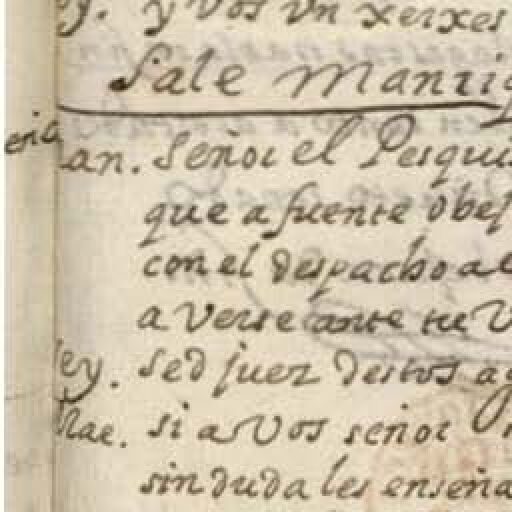 y vos un xerxes
Sale Manriq
an. Señor el Pesquis
que a fuente obej
con el despacho a
a verse ante tu V
ey. sed juez destos ag
Mae. si a vos señor
sin duda les enseña